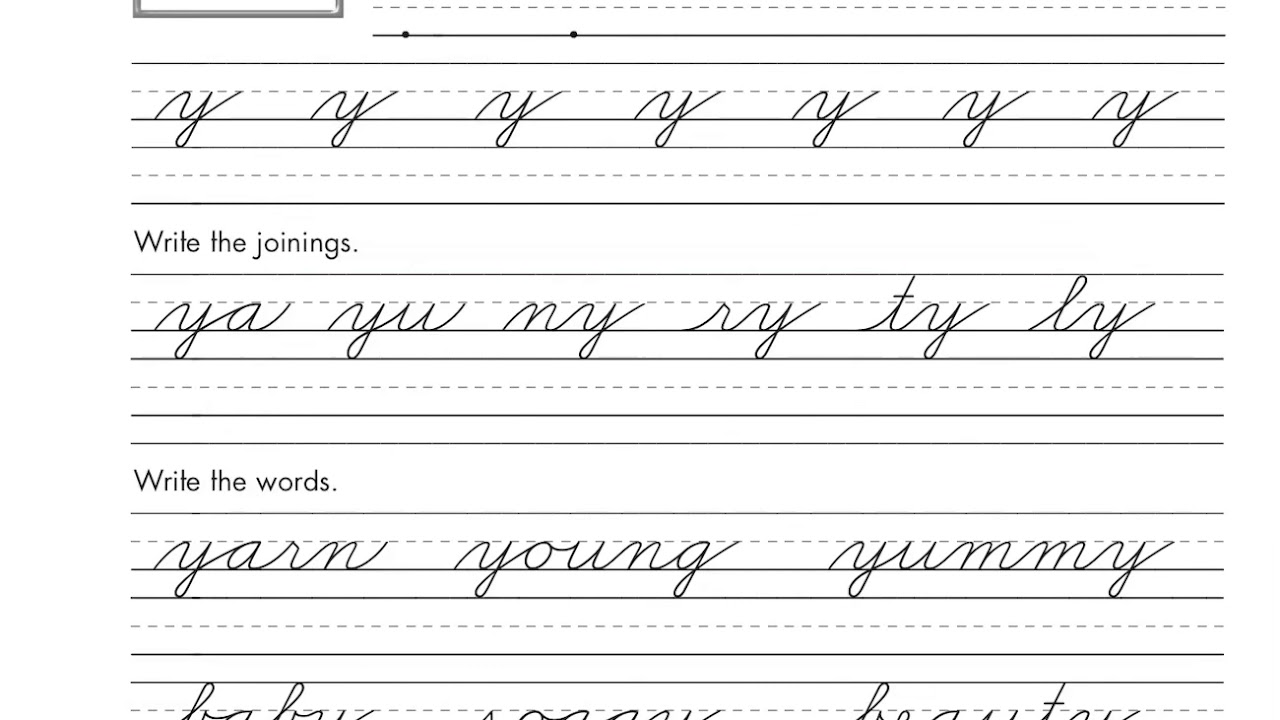 y y y y y y y
Write the joinings.
ya yu ny ry ty ly
Write the words.
yarn young yummy
baby soggy beauty